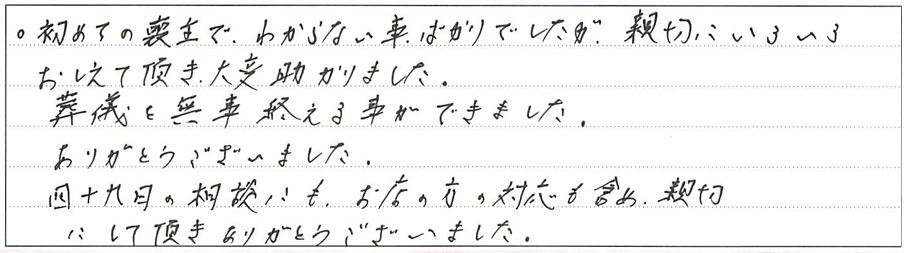 ○初めての喪主で、わからない事ばかりでしたが、親切にいろいろ
おしえて頂き、大変助かりました。
葬儀を無事終える事ができました。
ありがとうございました。
四十九日の相談にも、お店の方の対応も含め、親切
にして頂きありがとうございました。